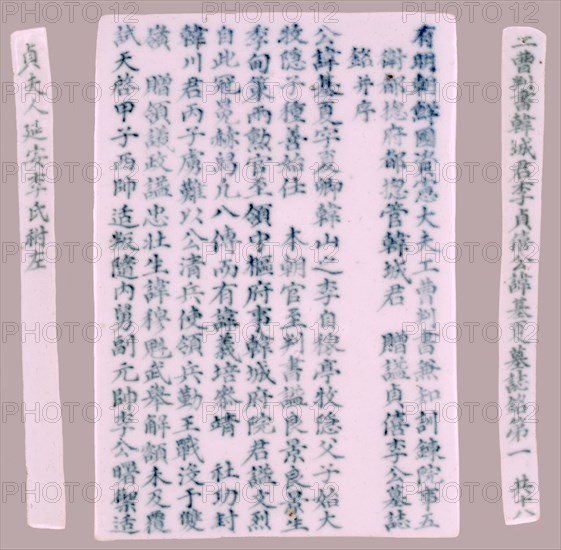 工曹判書韓城君李貞僖公諱基夏墓誌銘第一 共十八
有明朝鮮國資憲大夫工曹判書兼知訓練院事五
衛都摠府都摠管韓城君 贈諡貞僖李公墓誌
銘并序
公諱基夏字夏卿韓山之李自稼亭牧隐父子始大
牧隐子種善始仕 本朝官至判書諡良景良景生
季甸策兩勳官至領中樞府事韓城府院君諡文烈
自此冠冕赫舄凡八傳而有諱義培參靖 社功封
韓川君丙子虜難以公清兵使領兵勤王戰沒于雙
嶺 贈領議政諡忠壯生諱穆魁武擧解額未及覆
試天啓甲子西帥适叛隨內舅副元帥李公曙禦适
貞夫人延安李氏祔左